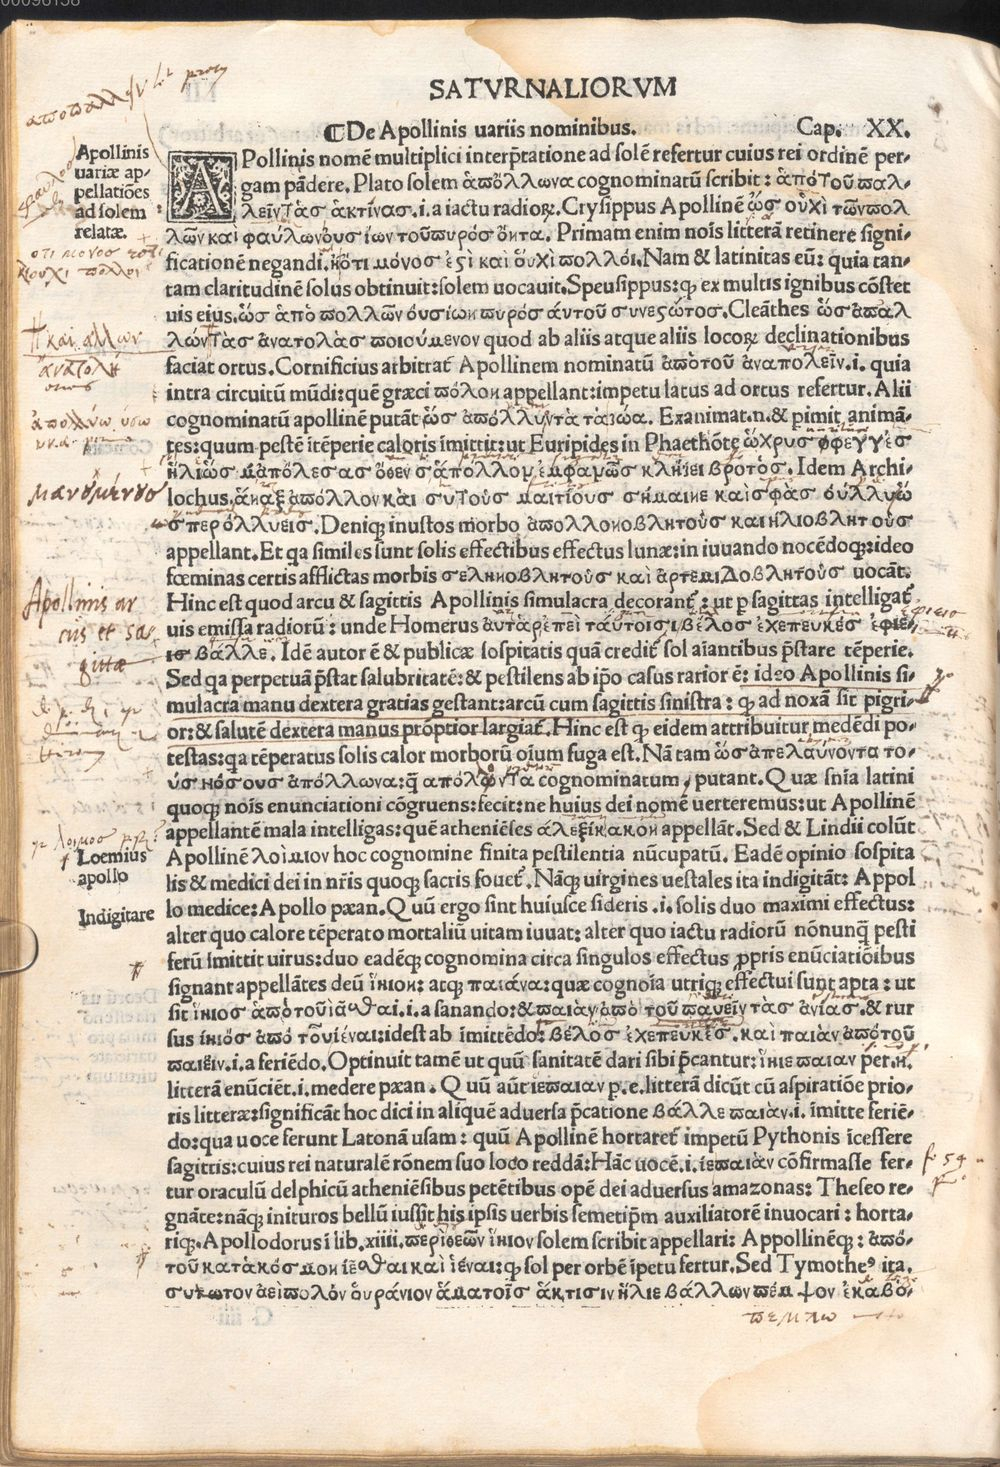 SATVRNALIORVM
❡De Apollinis uariis nominibus. Cap. XX.
Apollinis
uariæ ap-
pellatiões
ad solem
relatæ.
APollinis nomẽ multiplici interp̃tatione ad solẽ refertur cuius rei ordinẽ per-
gam pãdere. Plato solem ἀπόλλωνα cognominatũ scribit: ἀπό τοῦ παλ-
λεῖν τὰσ ἀκτίνασ. i. a iactu radioꝝ. Crysippus Apollinẽ ὡσ οὐχὶ τῶν πολ
λῶν καὶ φαύλων ουσιων τοῦ πυρόσ ὄντα. Primam enim nois litterã retinere signi-
ficationẽ negandi. ἢ ὅτι μόνοσ ἐςὶ καὶ οὐχὶ πολλόι. Nam & latinitas eũ: quia tan-
tam claritudinẽ solus obtinuit: solem uocauit. Speusippus: ꝙ ex multis ignibus cõstet
uis eius. ὡσ ἀπὸ πολλῶν ουσιων πυρόσ ἀυτοῦ συνεςῶτοσ. Cleãthes ὡσ ἀπαλ
λῶν τὰσ ἀνατολὰσ ποιούμενον quod ab aliis atque aliis locoꝝ declinationibus
faciat ortus. Cornificius arbitrat᷑ Apollinem nominatũ ἀπὸ τοῦ ἀναπολεῖν. i. quia
intra circuitũ mũdi: quẽ græci πόλον appellant: impetu latus ad ortus refertur. Alii
cognominatũ apollinẽ putãt ὡσ ἀπόλλυντα τα ζωα. Exanimat. n. & pimit animã-
tes: quum pestẽ itẽperie caloris imittit: ut Euripides in Phaethõte ὦχρυσ φφεγγέσ
ἡλιῶσ μ̓απόλεσασ ὅθεν σ̓απόλλον ἐμφαμῶσ κλήζει βροτὸσ. Idem Archi-
lochus. ἀναξ ἀπόλλον κὰι συ τοὺσ μαιτίουσ σήμαινε καὶ σφὰσ ὀυλλυω
σπερὀλλυεισ. Deniqꝫ inustos morbo ἀπολλονοβλητοὺσ καὶ ἡλιοβλητοὺσ
appellant. Et qa similes sunt solis effectibus effectus lunæ: in iuuando nocẽdoqꝫ: ideo
fœminas certis afflictas morbis σεληνοβλητοὺσ καὶ ἀρτεμιδοβλητοὺσ uocãt.
Hinc est quod arcu & sagittis Apollinis simulacra decorant᷑: ut p sagittas intelligat᷑
uis emissa radiorũ: unde Homerus ἀυτὰρ ἐπεὶ τἀυτοισι βέλοσ ἐχεπευκέσ ἐφιε-
ισ βάλλε. Idẽ autor ẽ & publicæ sospitatis quã credit᷑ sol aiantibus p̃stare tẽperie.
Sed qa perpetuã p̃stat salubritatẽ: & pestilens ab ip̃o casus rarior ẽ: ideo Apollinis si-
mulacra manu dextera gratias gestant: arcũ cum sagittis sinistra: ꝙ ad noxã sit pigri-
or: & salutẽ dextera manus prõptior largiat᷑. Hinc est ꝙ eidem attribuitur medẽdi po-
testas: qa tẽperatus solis calor morborũ oĩum fuga est. Nã tam ὡσ ἀπελαύνοντα το-
ὺσ νόσουσ ἀπόλλωνα: q̃ απόλωντα cognominatum, putant. Quæ snia latini
quoqꝫ nois enunciationi cõgruens: fecit: ne huius dei nomẽ uerteremus: ut Apollinẽ
appellantẽ mala intelligas: quẽ atheniẽses ἀλεξίκακον appellãt. Sed & Lindii colũt
Apollinẽ λοίμιον hoc cognomine finita pestilentia nũcupatũ. Eadẽ opinio sospita
lis & medici dei in nr̃is quoqꝫ sacris fouet᷑. Nãqꝫ uirgines uestales ita indigitãt: Appol
lo medice: Apollo pæan. Quũ ergo sint huiusce sideris .i. solis duo maximi effectus:
alter quo calore tẽperato mortaliũ uitam iuuat: alter quo iactu radiorũ nõnunq̃ pesti
ferũ imittit uirus: duo eadẽqꝫ cognomina circa singulos effectus ꝓpris enũciatiõibus
signant appellãtes deũ ἰήιον: atqꝫ παιάνα: quæ cognoia utriqꝫ effectui sunt apta: ut
sit ἰήιοσ ἀπὸ τοῦ ἰᾶσθαι. i. a sanando: & παιὰν ἀπὸ τοῦ παυεῖν τὰσ ἀνίασ. & rur
sus ἰήιόσ ἀπὸ τοῦ ιέναι: idest ab imittẽdo: βέλοσ ἐχεπευκέσ. καὶ παιὰν ἀπὸ τοῦ
παιεῖν. i. a feriẽdo. Optinuit tamẽ ut quũ sanitatẽ dari sibi p̃cantur: ἰήιε παιαν per. ή.
litterã enũciẽt. i. medere pæan. Quũ aũt ιεπαιαν p. ε. litterã dicũt cũ aspiratiõe prio-
ris litteræ: significãt hoc dici in aliquẽ aduersa p̃catione βάλλε παιὰν. i. imitte feriẽ-
do: qua uoce ferunt Latonã usam: quũ Apollinẽ hortaret᷑ impetũ Pythonis ĩcessere
sagittis: cuius rei naturalẽ rõnem suo loco reddã: Hãc uocẽ. i. ἱεπαιὰν cõfirmasse fer-
tur oraculũ delphicũ atheniẽsibus petẽtibus opẽ dei aduersus amazonas: Theseo re-
gnãte: nãqꝫ inituros bellũ iussit his ipsis uerbis semetip̃m auxiliatorẽ inuocari: horta-
riqꝫ. Apollodorus ĩ lib. xiiii. περὶ θεῶν ἰήιον solem scribit appellari: Appollinẽqꝫ: ἀπό-
τοῦ κατὰ κόσμον ἵεσθαι καὶ ἱέναι: ꝙ sol per orbẽ ĩpetu fertur. Sed Tymotheꝰ ita.
συτωτον αεὶ πολόν ὀυράνιον ἄματοῖσ ἄκτισιν ἥλιε βάλλων πέμψον ἐκαβό-
Apollinis ar
cus et sa
gittæ
Loemius
apollo
Indigitare
πεμπω